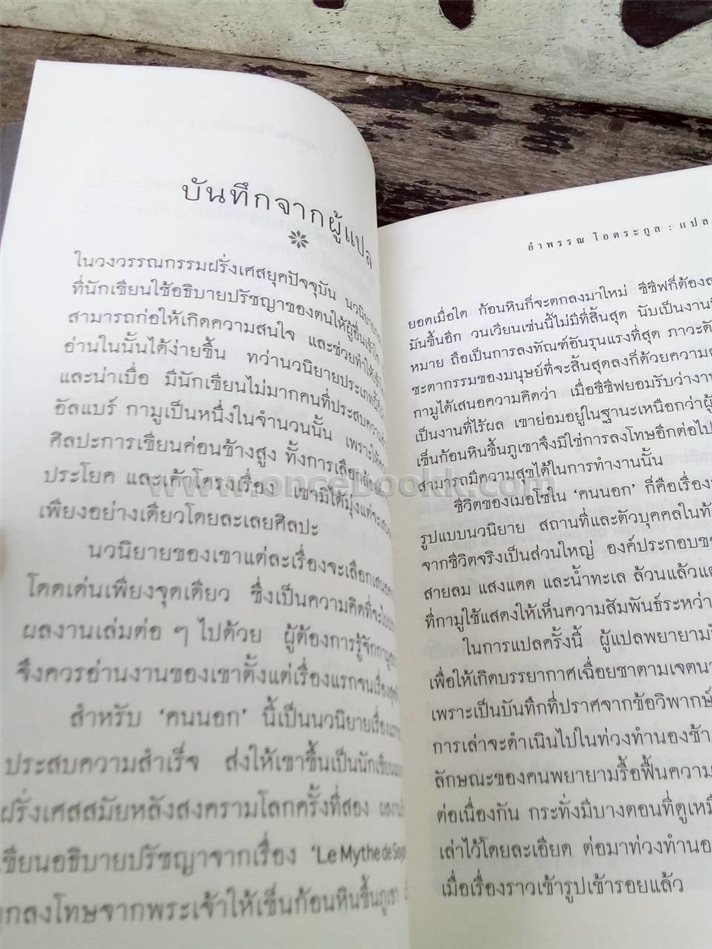 บันทึกจากผู้แปล
ในวงวรรณกรรมฝรั่งเศสยุคปัจจุบัน
ที่นักเขียนใช้อธิบายปรัชญาของตนให้ผู้อื่น
สามารถก่อให้เกิดความสนใจ และช่วยทำให้
อ่านในนั้นได้ง่ายขึ้น ทว่านวนิยายประเภทนี้
และน่าเบื่อ มีนักเขียนไม่มากคนที่ประสบความ
อัลแบร์ กามูเป็นหนึ่งในจำนวนนั้น เพราะ
ศิลปะการเขียนค่อนข้างสูง ทั้งการเลือก
ประโยค และเค้าโครงเรื่อง เขามิได้มุ่งแต่จะ
เพียงอย่างเดียวโดยละเลยศิลปะ
นวนิยายของเขาแต่ละเรื่องจะเลือก
โดดเด่นเพียงจุดเดียว ซึ่งเป็นความคิดที่จะ
ผลงานเล่มต่อ ๆ ไปด้วย ผู้ต้องการรู้จัก
จึงควรอ่านงานของเขาตั้งแต่เรื่องแรกจน
สำหรับ ‘คนนอก’ นี้เป็นนวนิยายเรื่อง
ประสบความสำเร็จ ส่งให้เขาขึ้นเป็นนักเขียน
ฝรั่งเศสสมัยหลังสงครามโลกครั้งที่สอง
เขียนอธิบายปรัชญาจากเรื่อง ‘Le Mythe de
ลงโทษจากพระเจ้าให้เข็นก้อนหินขึ้นภูเขา
อำพรรณ โอตระกูล : แปล
ยอดเมื่อใด ก้อนหินก็จะตกลงมาใหม่ ซิซิฟก็ต้อง
มันขึ้นอีก วนเวียนเช่นนี้ไม่มีที่สิ้นสุด นับเป็นงานที่
หมาย ถือเป็นการลงทัณฑ์อันรุนแรงที่สุด ภาวะ
ชะตากรรมของมนุษย์ที่จะสิ้นสุดลงก็ด้วยความ
กามูได้เสนอความคิดว่า เมื่อซิซิฟยอมรับว่างาน
เป็นงานที่ไร้ผล เขาย่อมอยู่ในฐานะเหนือกว่าผู้
เข็นก้อนหินขึ้นภูเขาจึงมิใช่การลงโทษอีกต่อไป
สามารถมีความสุขได้ในการทำงานนั้น
ชีวิตของเมอโซใน ‘คนนอก’ ก็คือเรื่อง
รูปแบบนวนิยาย สถานที่และตัวบุคคลใน
จากชีวิตจริงเป็นส่วนใหญ่ องค์ประกอบ
สายลม แสงแดด และน้ำทะเล ล้วนแล้ว
ที่กามูใช้แสดงให้เห็นความสัมพันธ์ระหว่า
ในการแปลครั้งนี้ ผู้แปลพยายาม
เพื่อให้เกิดบรรยากาศเฉื่อยชาตามเจตนา
เพราะเป็นบันทึกที่ปราศจากข้อวิพากษ์
การเล่าจะดำเนินไปในท่วงทำนองช้า
ลักษณะของคนพยายามรื้อฟื้นความ
ต่อเนื่องกัน กระทั่งมีบางตอนที่ดูเหมื
เล่าไว้โดยละเอียด ต่อมาท่วงทำนอง
เมื่อเรื่องราวเข้ารูปเข้ารอยแล้ว
www.oncebookk.com